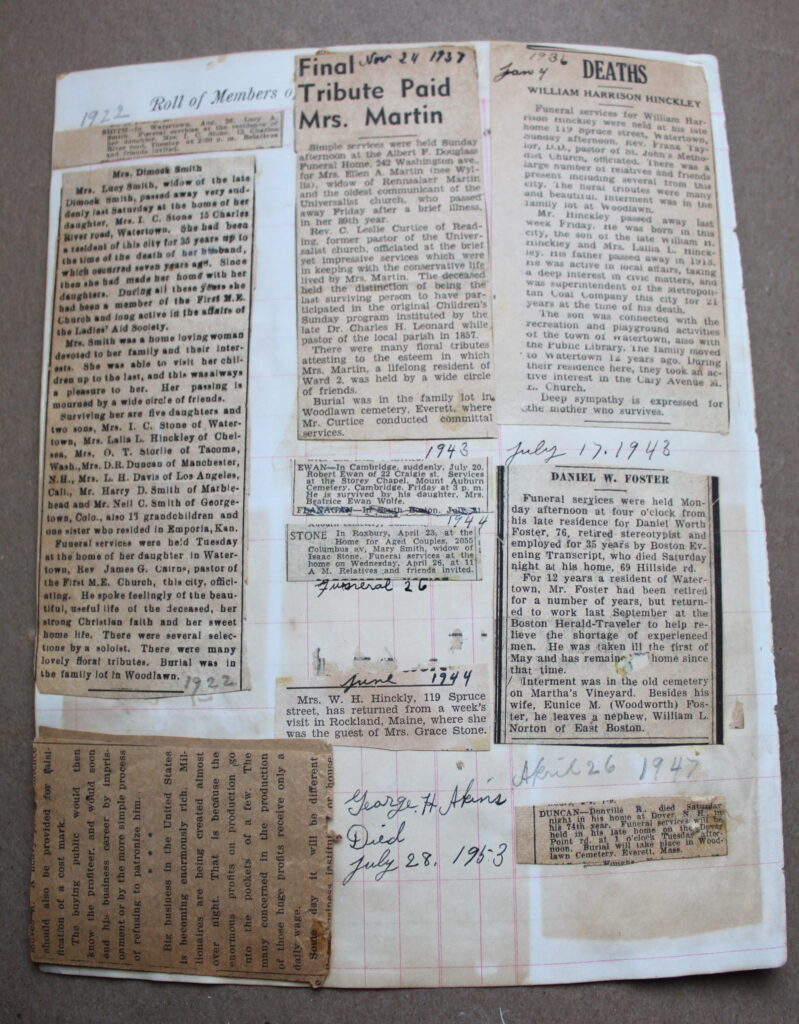 1922
Roll of Members o
SMITH—In Watertown, Aug. 26, Lucy A.
Smith. Funeral services at the residence of
her daughter, Mrs. I. C. Stone, 15 Charles
River road, Tuesday at 2:30 p. m. Relatives
and friends invited.
Mrs. Dimock Smith
Mrs. Lucy Smith, widow of the late
Dimock Smith, passed away very sud-
denly last Saturday at the home of her
daughter, Mrs. I. C. Stone 15 Charles
River road, Watertown. She had been
a resident of this city for 35 years up to
the time of the death of her husband,
which occurred seven years ago. Since
then she had made her home with her
daughters. During all these years she
had been a member of the First M.E.
Church and long active in the affairs of
the Ladies' Aid Society.
Mrs. Smith was a home loving woman
devoted to her family and their inter-
ests. She was able to visit her chil-
dren up to the last, and this was always
a pleasure to her. Her passing is
mourned by a wide circle of friends.
Surviving her are five daughters and
two sons, Mrs. I. C. Stone of Water-
town, Mrs. Lalla L. Hinckley of Chel-
sea, Mrs. O. T. Storlie of Tacoma,
Wash., Mrs. D.R. Duncan of Manchester,
N.H., Mrs. L. H. Davis of Los Angeles,
Cali., Mr. Harry D. Smith of Marble-
head and Mr. Neil C. Smith of George-
town, Colo., also 13 grandchildren and
one sister who resided in Emporia, Kan.
Funeral services were held Tuesday
at the home of her daughter in Water-
town, Rev James G. Cairns, pastor of
the First M.E. Church, this city, offici-
ating. He spoke feelingly of the beau-
tiful, useful life of the deceased, her
strong Christian faith and her sweet
home life. There were several selec-
tions by a soloist. There were many
lovely floral tributes. Burial was in
the family lot in Woodlawn.
1922
should also be provided for falsi-
fication of a cost mark.
The buying public would then
know the profiteer, and would soon
end his business career by impris-
onment or by the more simple process
of refusing to patronize him.
* * * *
Big business in the United States
is becoming enormously rich. Mil-
lionaires are being created almost
over night. That is because the
enormous profits on production go
into the pockets of a few. The
many concerned in the production
of those huge profits receive only a
daily wage.
Some day it will be different
Nov 24 1937
Final
Tribute Paid
Mrs. Martin
Simple services were held Sunday
afternoon at the Albert F. Douglass
Funeral Home, 342 Washington ave.,
for Mrs. Ellen A. Martin (nee Wyl-
lie), widow of Rennsalaer Martin
and the oldest communicant of the
Universalist church, who passed
away Friday after a brief illness,
in her 89th year.
Rev. C. Leslie Curtice of Read-
ing, former pastor of the Univer-
salist church, officiated at the brief
yet impressive services which were
in keeping with the conservative life
lived by Mrs. Martin. The deceased
held the distinction of being the
last surviving person to have par-
ticipated in the original Children's
Sunday program instituted by the
late Dr. Charles H. Leonard while
pastor of the local parish in 1857.
There were many floral tributes
attesting to the esteem in which
Mrs. Martin, a lifelong resident of
Ward 2, was held by a wide circle
of friends.
Burial was in the family lot in
Woodlawn cemetery, Everett, where
Mr. Curtice conducted committal
services.
1943
EWAN—In Cambridge, suddenly, July 20,
Robert Ewan of 22 Craigie st. Services
at the Storey Chapel, Mount Auburn
Cemetery, Cambridge, Friday at 3 p. m.
He is survived by his daughter, Mrs.
Beatrice Ewan Wolfe.
FLANAGAN—In South Boston, July
1944
STONE In Roxbury, April 23, at the
Home for Aged Couples, 2055
Columbus av, Mary Smith, widow of
Isaac Stone. Funeral services at the
home on Wednesday, April 26, at 11
A M. Relatives and friends invited.
Funeral 26
June 1944
Mrs. W. H. Hinckly, 119 Spruce
street, has returned from a week's
visit in Rockland, Maine, where she
was the guest of Mrs. Grace Stone.
George H. Akins
Died
July 28. 1953
1936
Jan 4
DEATHS
WILLIAM HARRISON HINCKLEY
Funeral services for William Har-
rison Hinckley were held at his late
home 119 Spruce street, Watertown,
Sunday afternoon. Rev. Frank Tay-
lor, D.D., pastor of St. John's Metho-
dist Church, officiated. There was a
large number of relatives and friends
present including several from this
city. The floral tributes were many
and beautiful. Interment was in the
family lot at Woodlawn.
Mr. Hinckley passed away last
week Friday. He was born in this
city, the son of the late William H.
Hinckley and Mrs. Lalla L. Hinck-
ley. His father passed away in 1913.
He was active in local affairs, taking
a deep interest in civic matters, and
was superintendent of the Metropoli-
tan Coal Company this city for 21
years at the time of his death.
The son was connected with the
recreation and playground activities
of the town of Watertown, also with
the Public Library. The family moved
to Watertown 12 years ago. During
their residence here, they took an ac-
tive interest in the Cary Avenue M.
E. Church.
Deep sympathy is expressed for
the mother who survives.
July 17. 1943
DANIEL W. FOSTER
Funeral services were held Mon-
day afternoon at four o'clock from
his late residence for Daniel Worth
Foster, 76, retired stereotypist and
employed for 35 years by Boston Ev-
ening Transcript, who died Saturday
night at his home, 69 Hillside rd.
For 12 years a resident of Water-
town, Mr. Foster had been retired
for a number of years, but return-
ed to work last September at the
Boston Herald-Traveler to help re-
lieve the shortage of experienced
men. He was taken ill the first of
May and has remain home since
that time.
Interment was in the old cemetery
on Martha's Vineyard. Besides his
wife, Eunice M. (Woodworth) Fos-
ter, he leaves a nephew, William L.
Norton of East Boston.
April 26 1947
DUNCAN—Donville R. died Saturday
night in his home at Dover, N. H. in
his 74th year. Funeral services will be
held in his late home on the Dover
Point rd. at 1 o'clock Tuesday after-
noon. Burial will take place in Wood-
lawn Cemetery, Everett, Mass.